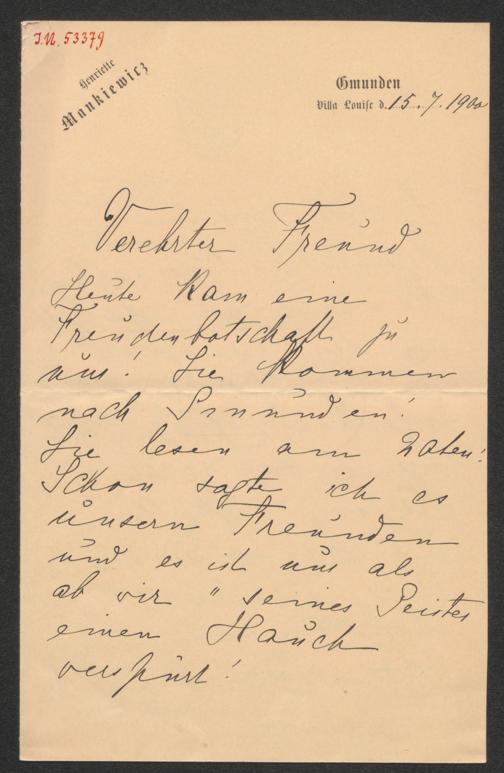 I.N. 53379
Henriette
Mankiewicz
Gmunden
Villa Louise d. 15. 7. 1900
Verehrter Freund
Heute kam eine
Freudenbotschaft zu
uns! Sie kommen
nach Gmunden!
Sie lesen am 20ten!
Schon sagte ich es
unsern Freunden
und es ist uns als
ob wir " seines Geistes
einen Hauch
verspürt!